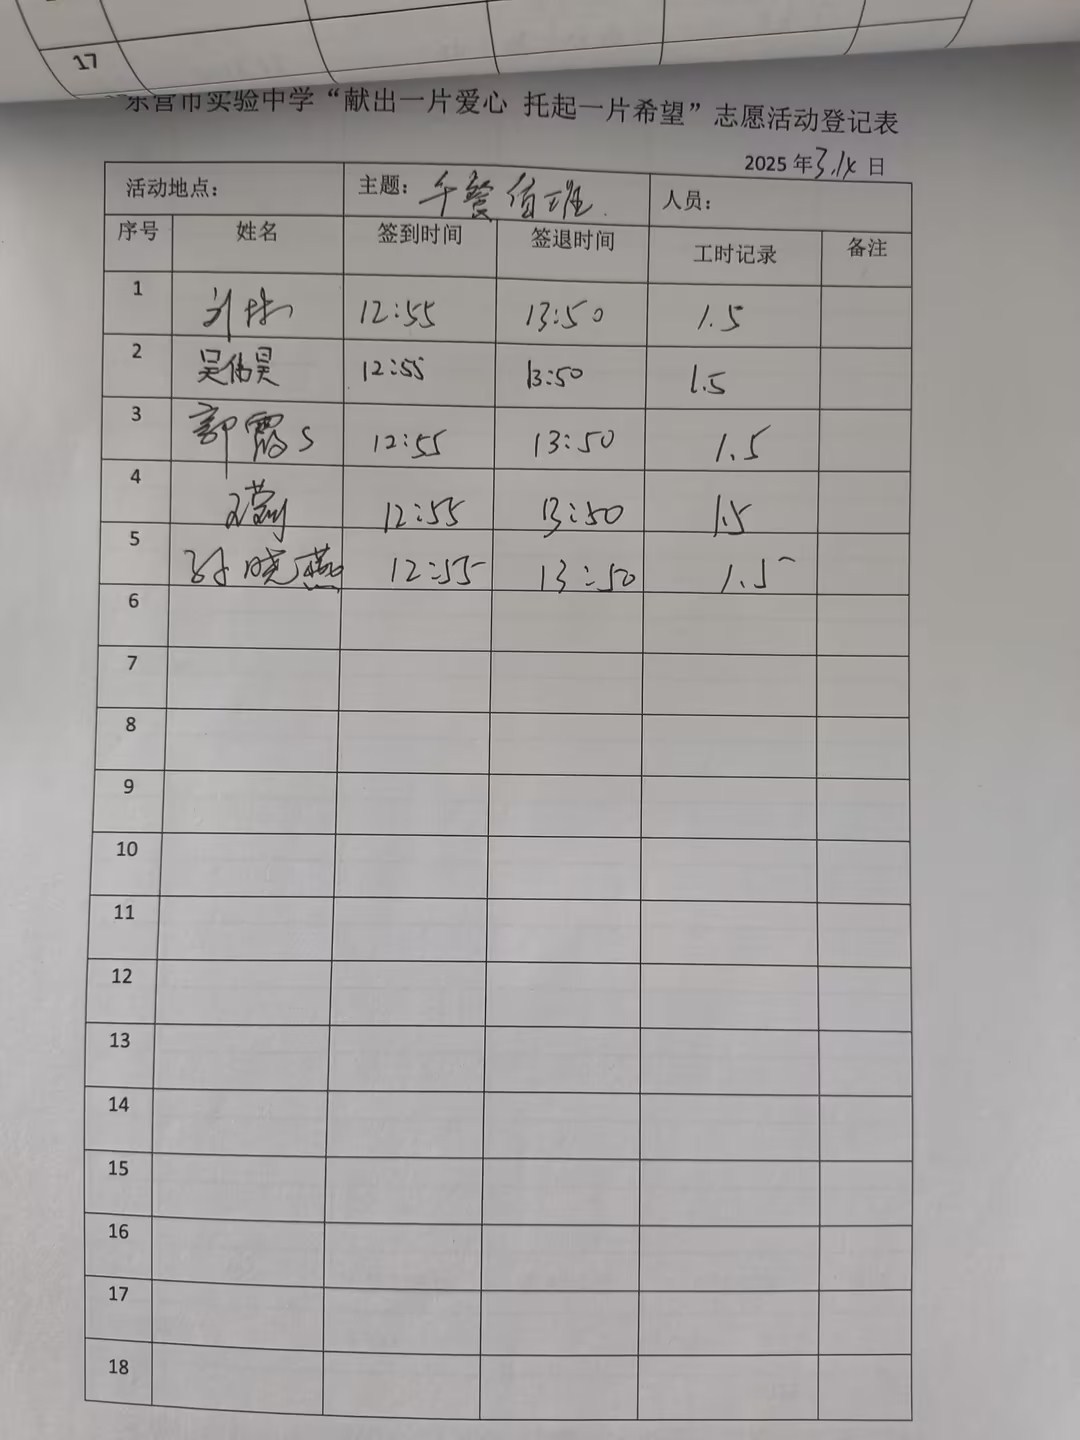 17
东营市实验中学“献出一片爱心 托起一片希望”志愿活动登记表
2025 年3.14 日
活动地点： 主题：午餐值班. 人员：
序号 姓名 签到时间 签退时间 工时记录 备注
1 刘 12:55 13:50 1.5
2 吴伟昊 12:55 13:50 1.5
3 郭霞 12:55 13:50 1.5
4 王 12:55 13:50 1.5
5 孙晓燕 12:55 13:50 1.5
6
7
8
9
10
11
12
13
14
15
16
17
18